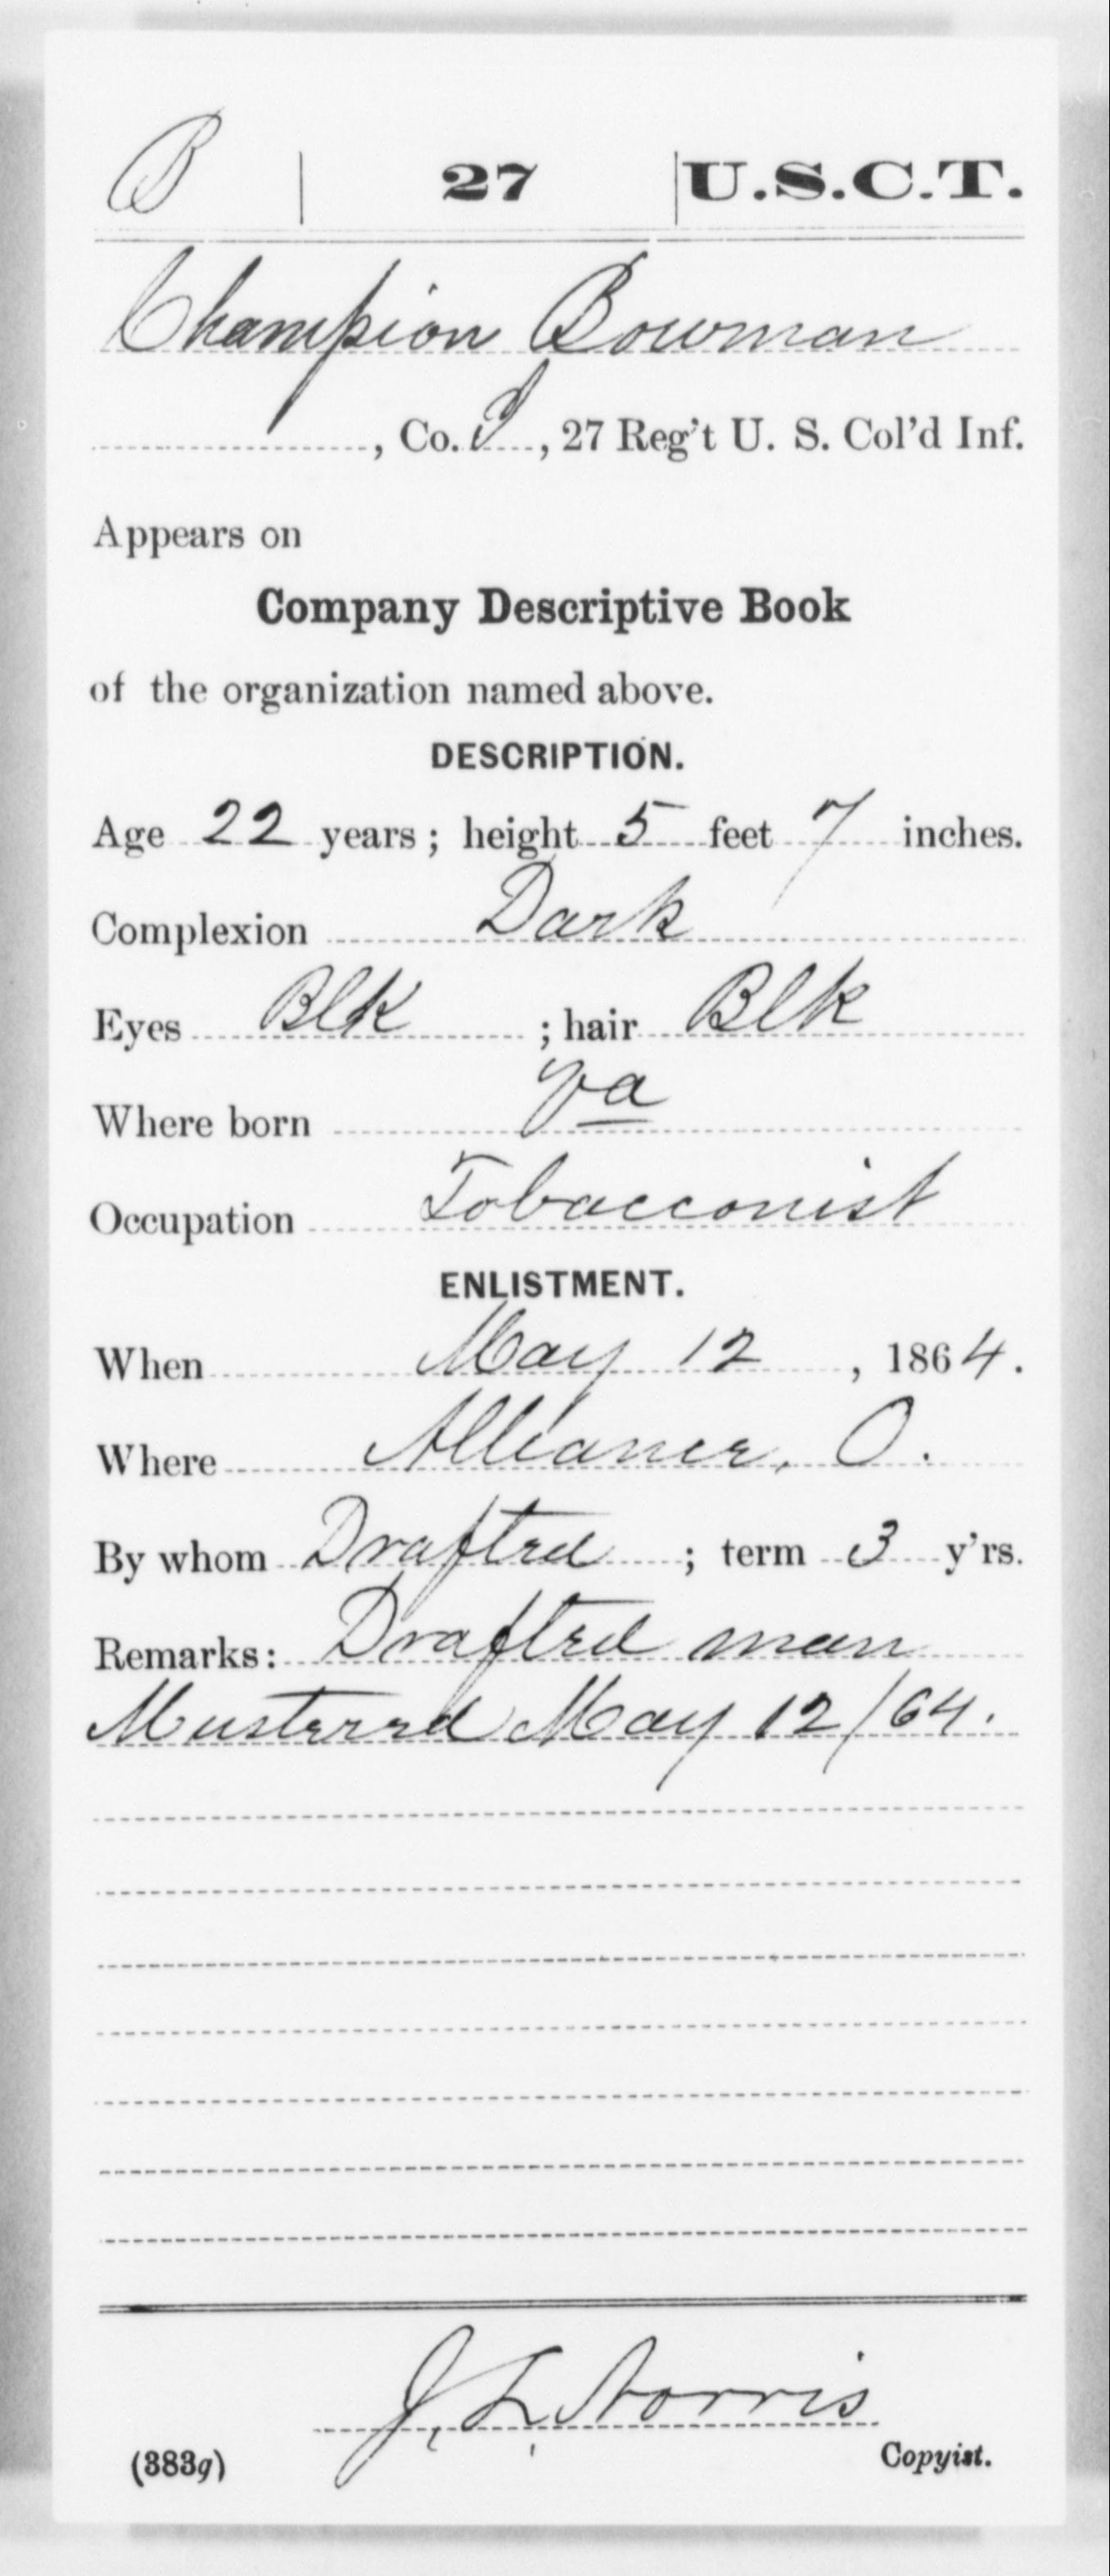 B | 27 | U.S.C.T.
Champion Bowman
, Co. I, 27 Reg't U. S. Col'd Inf.
Appears on
Company Descriptive Book
of the organization named above.
DESCRIPTION.
Age 22 years; height 5 feet 7 inches.
Complexion Dark
Eyes Blk ; hair Blk
Where born Va
Occupation Tobacconist
ENLISTMENT.
When May 12, 1864.
Where Alliance, O.
By whom Drafted; term 3 y'rs.
Remarks: Drafted man
Mustered May 12/64.
J. L. Norris
(383g) Copyist.